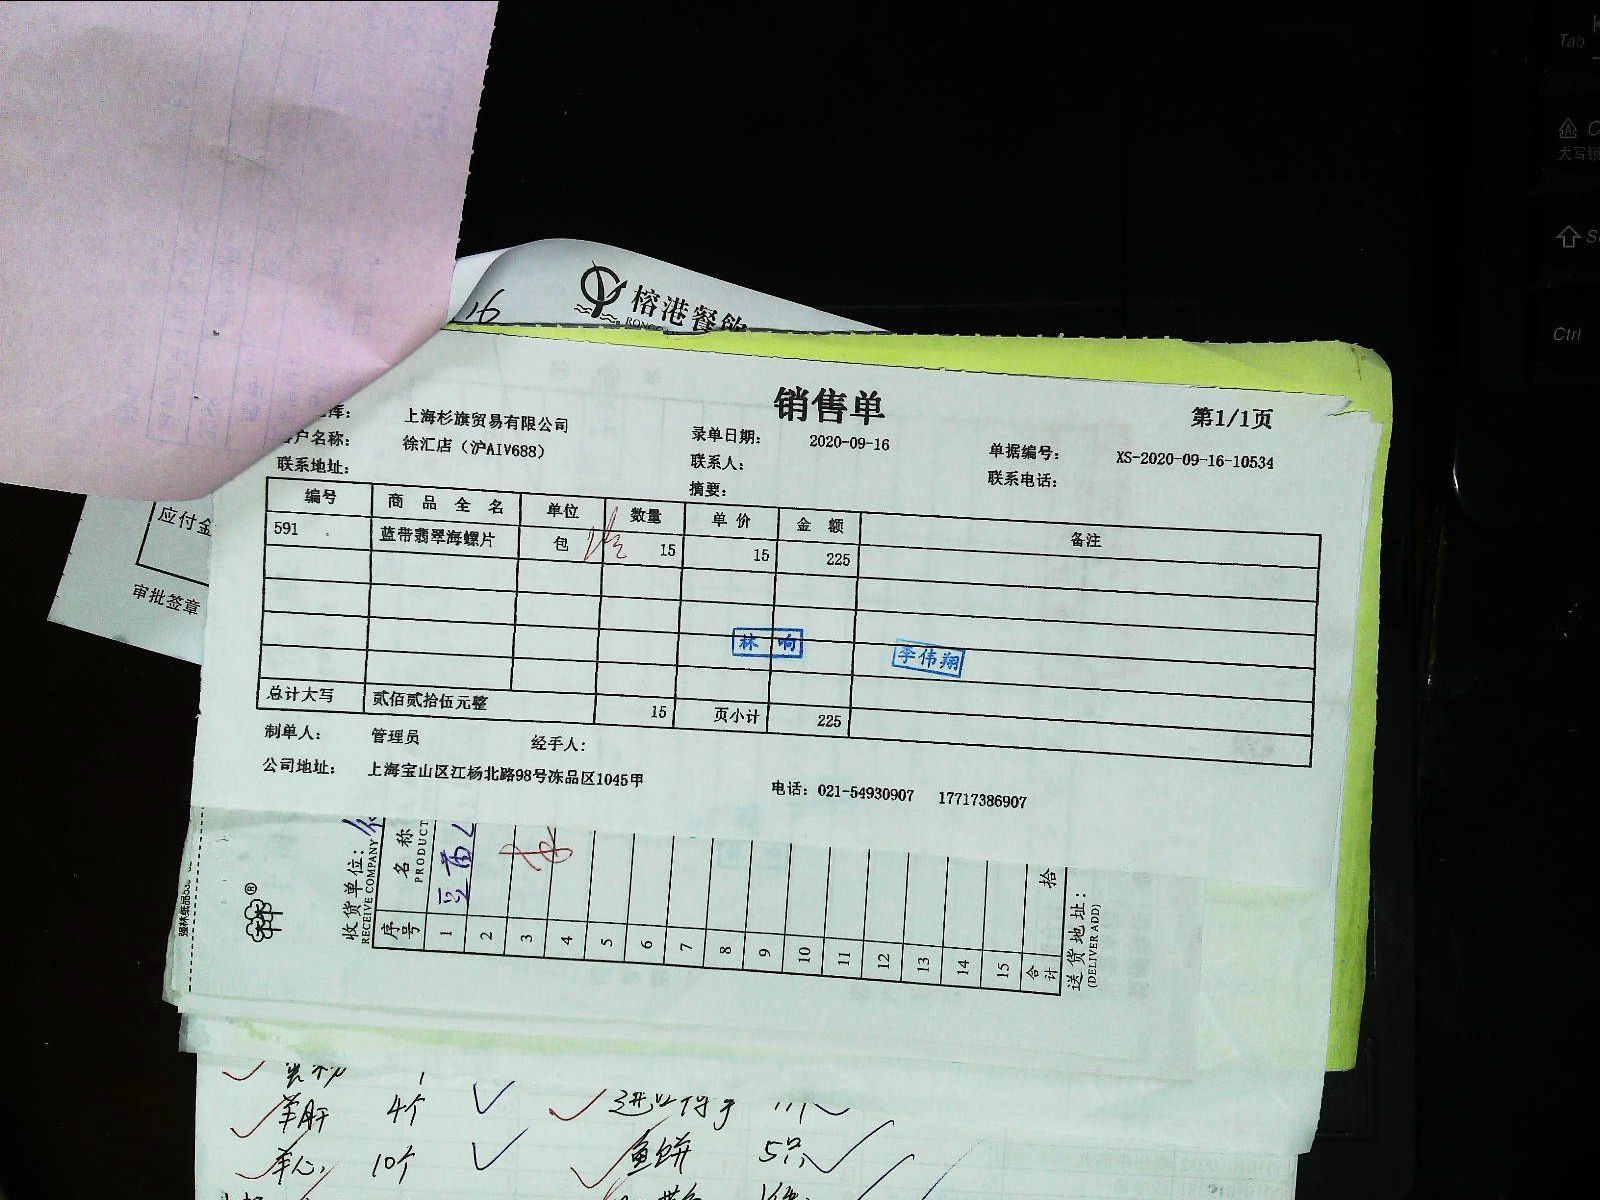 榕港餐饮
16
销售单
第1/1页
库： 上海杉旗贸易有限公司
录单日期： 2020-09-16
单据编号： XS-2020-09-16-10534
客户名称： 徐汇店（沪AIV688）
联系人：
联系电话：
联系地址：
摘要：
编号 商品全名 单位 数量 单价 金额 备注
591 蓝带翡翠海螺片 包 15 15 225
林响 李伟翔
总计大写 贰佰贰拾伍元整 15 页小计 225
制单人： 管理员 经手人：
公司地址： 上海宝山区江杨北路98号冻品区1045甲
电话：021-54930907 17717386907
应付金
审批签章
收货单位：
RECEIVE COMPANY
序号 名称
PRODUCT
1 2 3 4 5 6 7 8 9 10 11 12 13 14 15 合计
拾
送货地址：
(DELIVER ADD)
羊肝 4个
羊心 10个
鱼饼 5只
Tab
大写锁
Ctrl